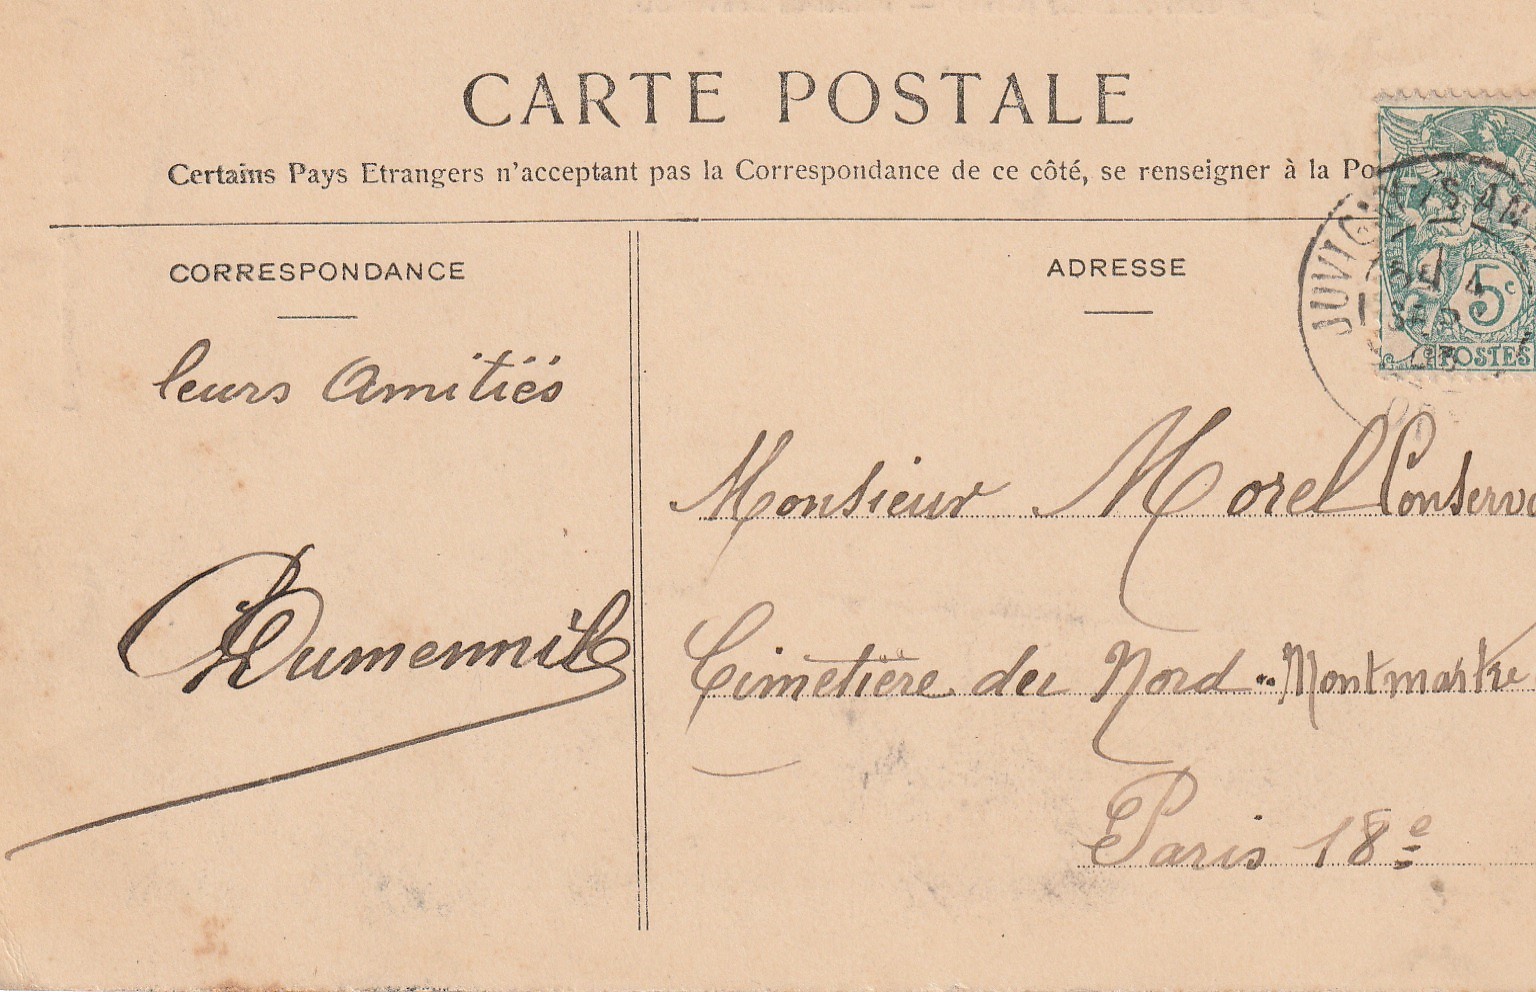 CARTE POSTALE
Certains Pays Etrangers n'acceptant pas la Correspondance de ce côté, se renseigner à la Po
CORRESPONDANCE
ADRESSE
JUVIG
5c
POSTES
leurs Amitiés
Dumennil
Monsieur Morel Conserva
Cimetière du Nord - Montmartre
Paris 18e